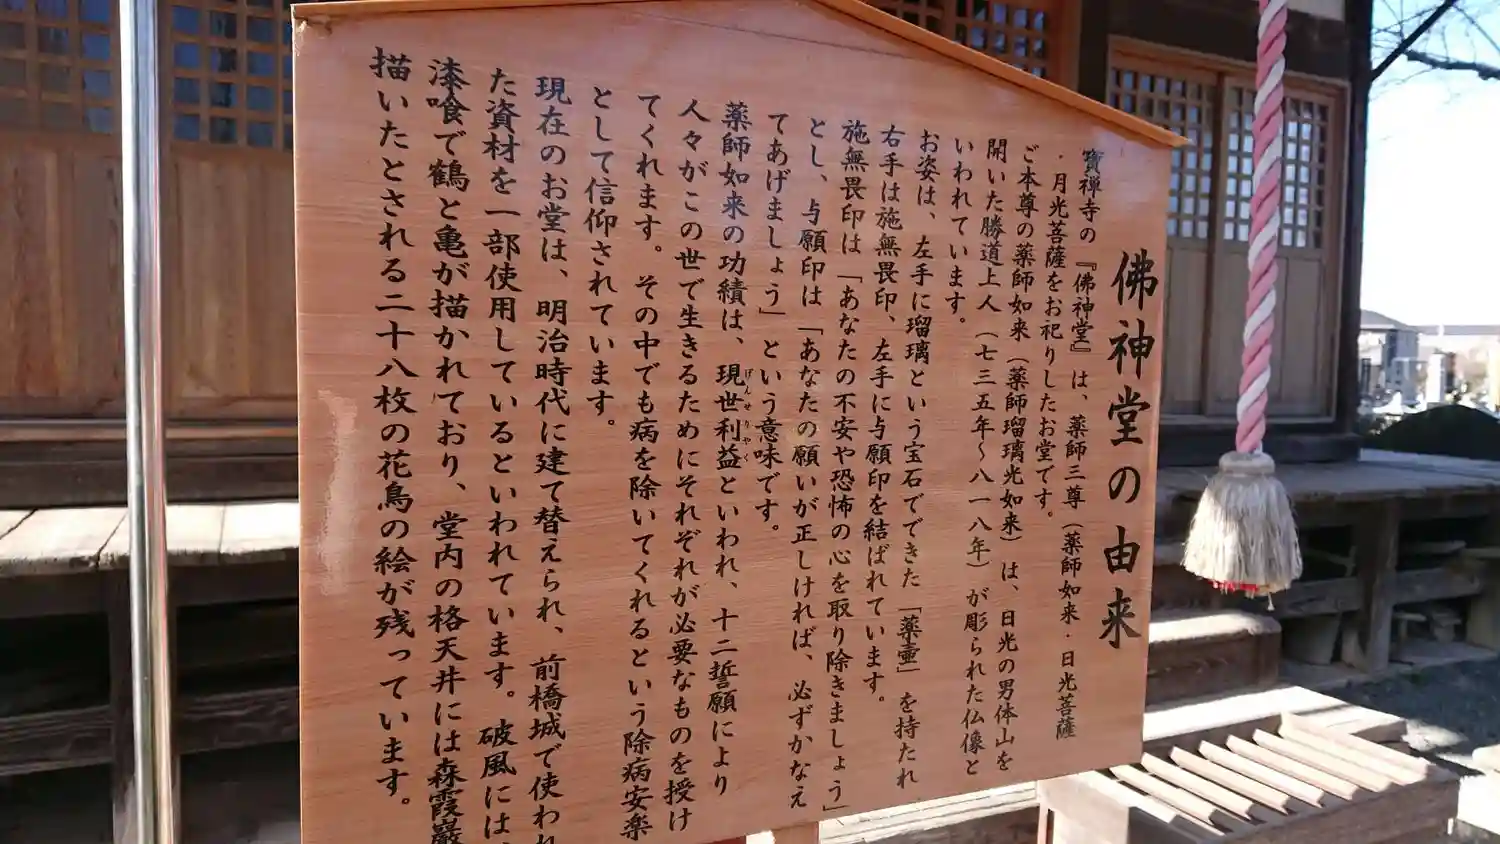 佛神堂の由来
寶禅寺の『佛神堂』は、薬師三尊（薬師如来・日光菩薩
・月光菩薩をお祀りしたお堂です。
ご本尊の薬師如来（薬師瑠璃光如来）は、日光の男体山を
開いた勝道上人（七三五年～八一八年）が彫られた仏像と
いわれています。
お姿は、左手に瑠璃という宝石でできた「薬壷」を持たれ
右手は施無畏印、左手に与願印を結ばれています。
施無畏印は「あなたの不安や恐怖の心を取り除きましょう」
とし、与願印は「あなたの願いが正しければ、必ずかなえ
てあげましょう」という意味です。
薬師如来の功績は、現世利益といわれ、十二誓願により
げんせりやく
人々がこの世で生きるためにそれぞれが必要なものを授け
てくれます。その中でも病を除いてくれるという除病安楽
として信仰されています。
現在のお堂は、明治時代に建て替えられ、前橋城で使われ
た資材を一部使用しているといわれています。破風には、
漆喰で鶴と亀が描かれており、堂内の格天井には森霞巌
描いたとされる二十八枚の花鳥の絵が残っています。